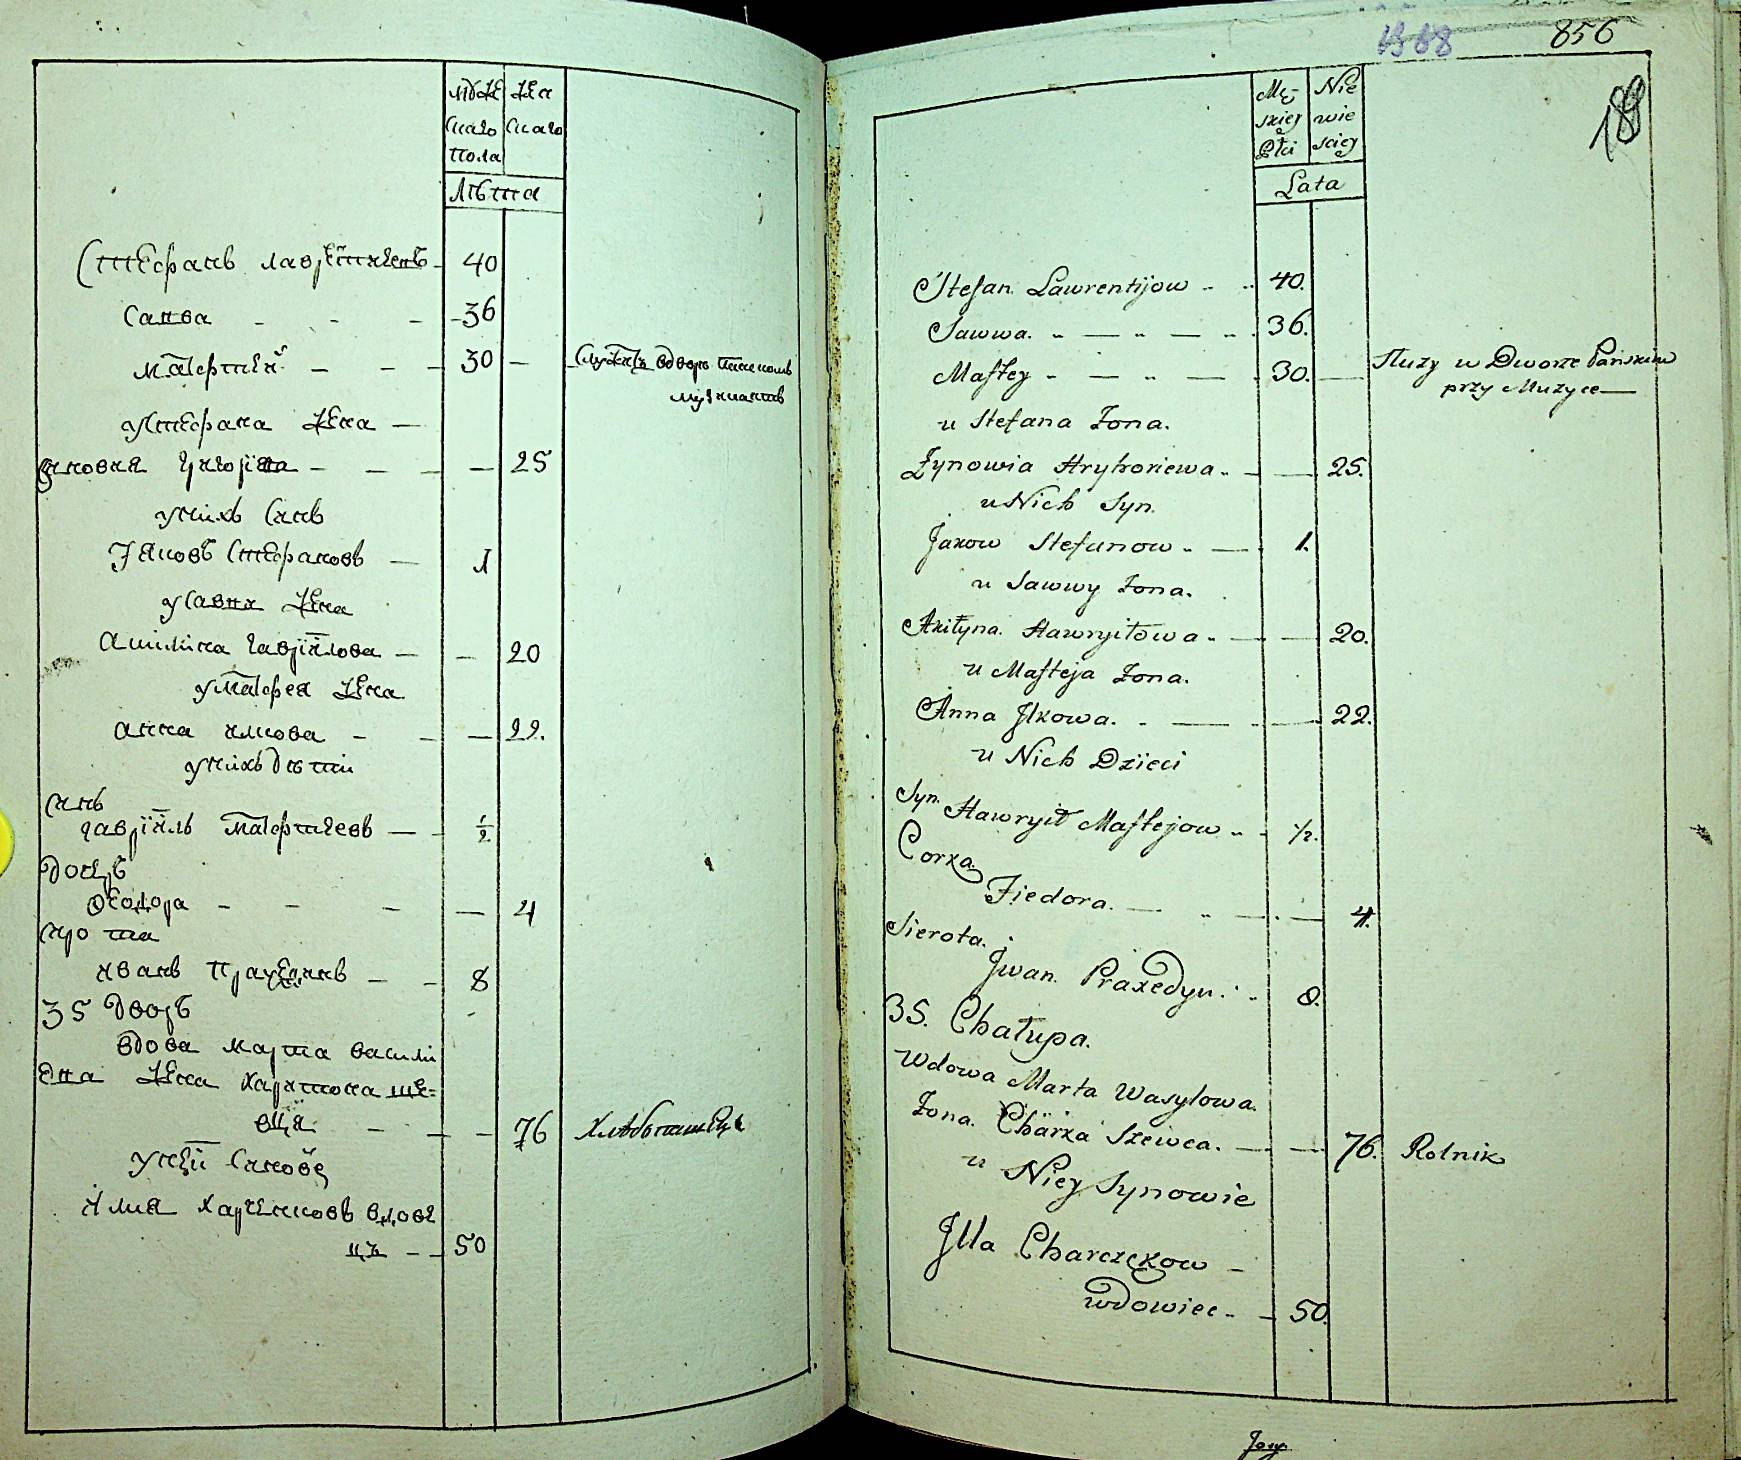 мужескаго пола
женскаго
Лѣта
Стефанъ Лаврентиевъ - 40
Савва - - - 36
Матфтей - - - 30 - Служатъ вдворѣ панскомъ
музикантъ
у Стефана жена -
Зиновия Григориева - - - - 25
у нихъ синъ
Іаковъ Стефановъ - 1
у Савви жена
Акилина Гавриилова - - 20
у Матфея жена
Анна Илкова - - - 22.
у нихъ дѣти
синъ
Гавриилъ Матфтиевъ - - 1/2
дочеръ
Феодора - - - - 4
сирота
Иванъ Праξединъ - - 8
35 дворъ
вдова Марта Васили
ева жена Харитона шев-
ца - - - 76 Хлѣбопашецъ
у неи синове
Илия Харченковъ вдове
цъ - - 50
1968 856
189
Męzkiey Płci
Niewieściey
Lata
Stefan Lawrentijow - - 40.
Sawwa. - — - — - 36.
Maftey - — - — - 30. — Służy w Dworze Pańskim
przy Muzyce —
u Stefana Żona.
Zynowia Hryhoriewa - - — 25.
u Nich Syn.
Jakow Stefanow - — 1.
u Sawwy Żona.
Akiłyna Hawryiłowa - — — 20.
u Mafteja Żona.
Anna Jlkowa. - — — 22.
u Nich Dzieci
Syn.
Hawryił Maftejow - - 1/2.
Corka
Fiedora. — - — — 4.
Sierota.
Jwan Praxedyn. - - 8.
35. Chałupa.
Wdowa Marta Wasylowa.
Żona Charka Szewca. — — 76. Rolnik
u Niey Synowie
Jlla Charczekow —
wdowiec - - 50.